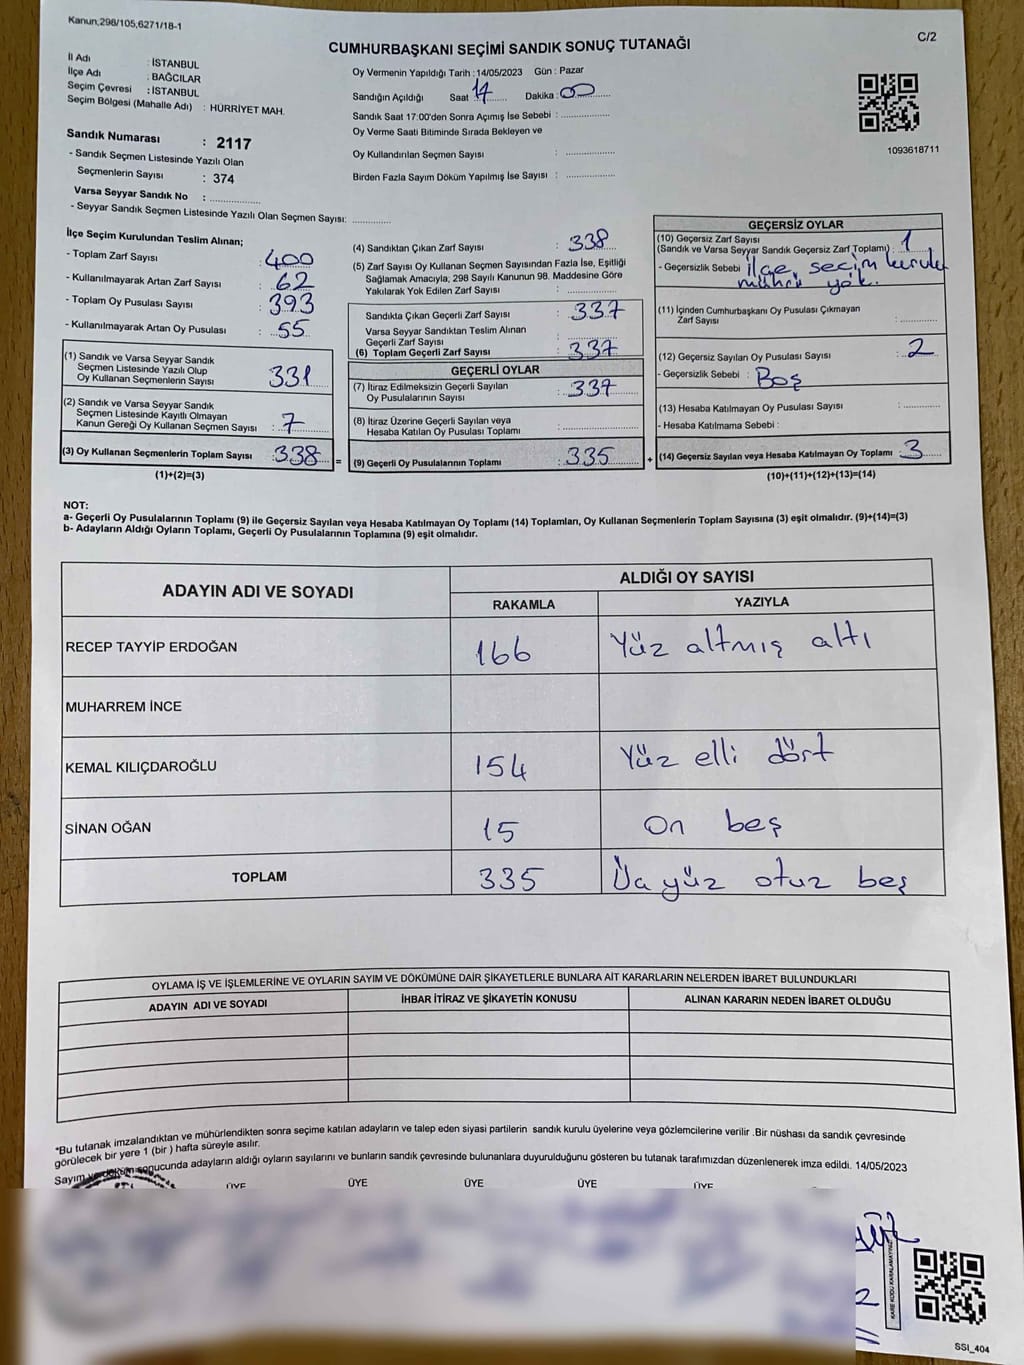 Kanun,298/105,6271/18-1
C/2
CUMHURBAŞKANI SEÇİMİ SANDIK SONUÇ TUTANAĞI
İl Adı : İSTANBUL
İlçe Adı : BAĞCILAR
Seçim Çevresi : İSTANBUL
Seçim Bölgesi (Mahalle Adı) : HÜRRİYET MAH.
Sandık Numarası : 2117
- Sandık Seçmen Listesinde Yazılı Olan
Seçmenlerin Sayısı : 374
Varsa Seyyar Sandık No : ................
- Seyyar Sandık Seçmen Listesinde Yazılı Olan Seçmen Sayısı: ............
Oy Vermenin Yapıldığı Tarih : 14/05/2023 Gün : Pazar
Sandığın Açıldığı Saat 17 Dakika : 00
Sandık Saat 17:00'den Sonra Açımış İse Sebebi : ................
Oy Verme Saati Bitiminde Sırada Bekleyen ve
Oy Kullandırılan Seçmen Sayısı : ................
Birden Fazla Sayım Döküm Yapılmış İse Sayısı : ................
1093618711
İlçe Seçim Kurulundan Teslim Alınan;
- Toplam Zarf Sayısı : 400
- Kullanılmayarak Artan Zarf Sayısı : 62
- Toplam Oy Pusulası Sayısı : 393
- Kullanılmayarak Artan Oy Pusulası : 55
(1) Sandık ve Varsa Seyyar Sandık
Seçmen Listesinde Yazılı Olup
Oy Kullanan Seçmenlerin Sayısı 331
(2) Sandık ve Varsa Seyyar Sandık
Seçmen Listesinde Kayıtlı Olmayan
Kanun Gereği Oy Kullanan Seçmen Sayısı : 7
(3) Oy Kullanan Seçmenlerin Toplam Sayısı : 338
(1)+(2)=(3)
=
(4) Sandıktan Çıkan Zarf Sayısı : 338
(5) Zarf Sayısı Oy Kullanan Seçmen Sayısından Fazla İse, Eşitliği
Sağlamak Amacıyla, 298 Sayılı Kanunun 98. Maddesine Göre
Yakılarak Yok Edilen Zarf Sayısı : ................
Sandıkta Çıkan Geçerli Zarf Sayısı : 337
Varsa Seyyar Sandıktan Teslim Alınan
Geçerli Zarf Sayısı : ................
(6) Toplam Geçerli Zarf Sayısı : 337
GEÇERLİ OYLAR
(7) İtiraz Edilmeksizin Geçerli Sayılan
Oy Pusulalarının Sayısı : 337
(8) İtiraz Üzerine Geçerli Sayılan veya
Hesaba Katılan Oy Pusulası Toplamı : ................
(9) Geçerli Oy Pusulalarının Toplamı : 335
+
GEÇERSİZ OYLAR
(10) Geçersiz Zarf Sayısı
(Sandık ve Varsa Seyyar Sandık Geçersiz Zarf Toplamı) : 1
- Geçersizlik Sebebi : ilçe seçim kurulu
mührü yok.
(11) İçinden Cumhurbaşkanı Oy Pusulası Çıkmayan
Zarf Sayısı : ............
(12) Geçersiz Sayılan Oy Pusulası Sayısı : 2
- Geçersizlik Sebebi : Boş
(13) Hesaba Katılmayan Oy Pusulası Sayısı : ............
- Hesaba Katılmama Sebebi :
(14) Geçersiz Sayılan veya Hesaba Katılmayan Oy Toplamı : 3
(10)+(11)+(12)+(13)=(14)
NOT:
a- Geçerli Oy Pusulalarının Toplamı (9) ile Geçersiz Sayılan veya Hesaba Katılmayan Oy Toplamı (14) Toplamları, Oy Kullanan Seçmenlerin Toplam Sayısına (3) eşit olmalıdır. (9)+(14)=(3)
b- Adayların Aldığı Oyların Toplamı, Geçerli Oy Pusulalarının Toplamına (9) eşit olmalıdır.
ADAYIN ADI VE SOYADI
ALDIĞI OY SAYISI
RAKAMLA YAZIYLA
RECEP TAYYİP ERDOĞAN 166 Yüz altmış altı
MUHARREM İNCE
KEMAL KILIÇDAROĞLU 154 Yüz elli dört
SİNAN OĞAN 15 On beş
TOPLAM 335 Üç yüz otuz beş
OYLAMA İŞ VE İŞLEMLERİNE VE OYLARIN SAYIM VE DÖKÜMÜNE DAİR ŞİKAYETLERLE BUNLARA AİT KARARLARIN NELERDEN İBARET BULUNDUKLARI
ADAYIN ADI VE SOYADI İHBAR İTİRAZ VE ŞİKAYETİN KONUSU ALINAN KARARIN NEDEN İBARET OLDUĞU
*Bu tutanak imzalandıktan ve mühürlendikten sonra seçime katılan adayların ve talep eden siyasi partilerin sandık kurulu üyelerine veya gözlemcilerine verilir .Bir nüshası da sandık çevresinde
görülecek bir yere 1 (bir ) hafta süreyle asılır.
Sayım ve döküm sonucunda adayların aldığı oyların sayılarını ve bunların sandık çevresinde bulunanlara duyurulduğunu gösteren bu tutanak tarafımızdan düzenlenerek imza edildi. 14/05/2023
ÜYE ÜYE ÜYE ÜYE ÜYE
KARE KODU KARALAMAYINIZ
SSI_404